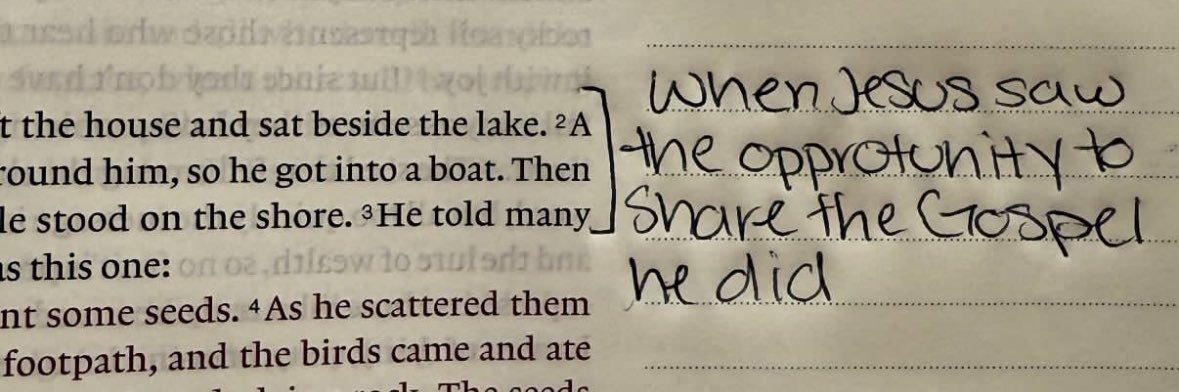 t the house and sat beside the lake. ²A
round him, so he got into a boat. Then
le stood on the shore. ³He told many
as this one:
nt some seeds. ⁴As he scattered them
footpath, and the birds came and ate
The seeds
When Jesus saw
the opprotunity to
Share the Gospel
he did